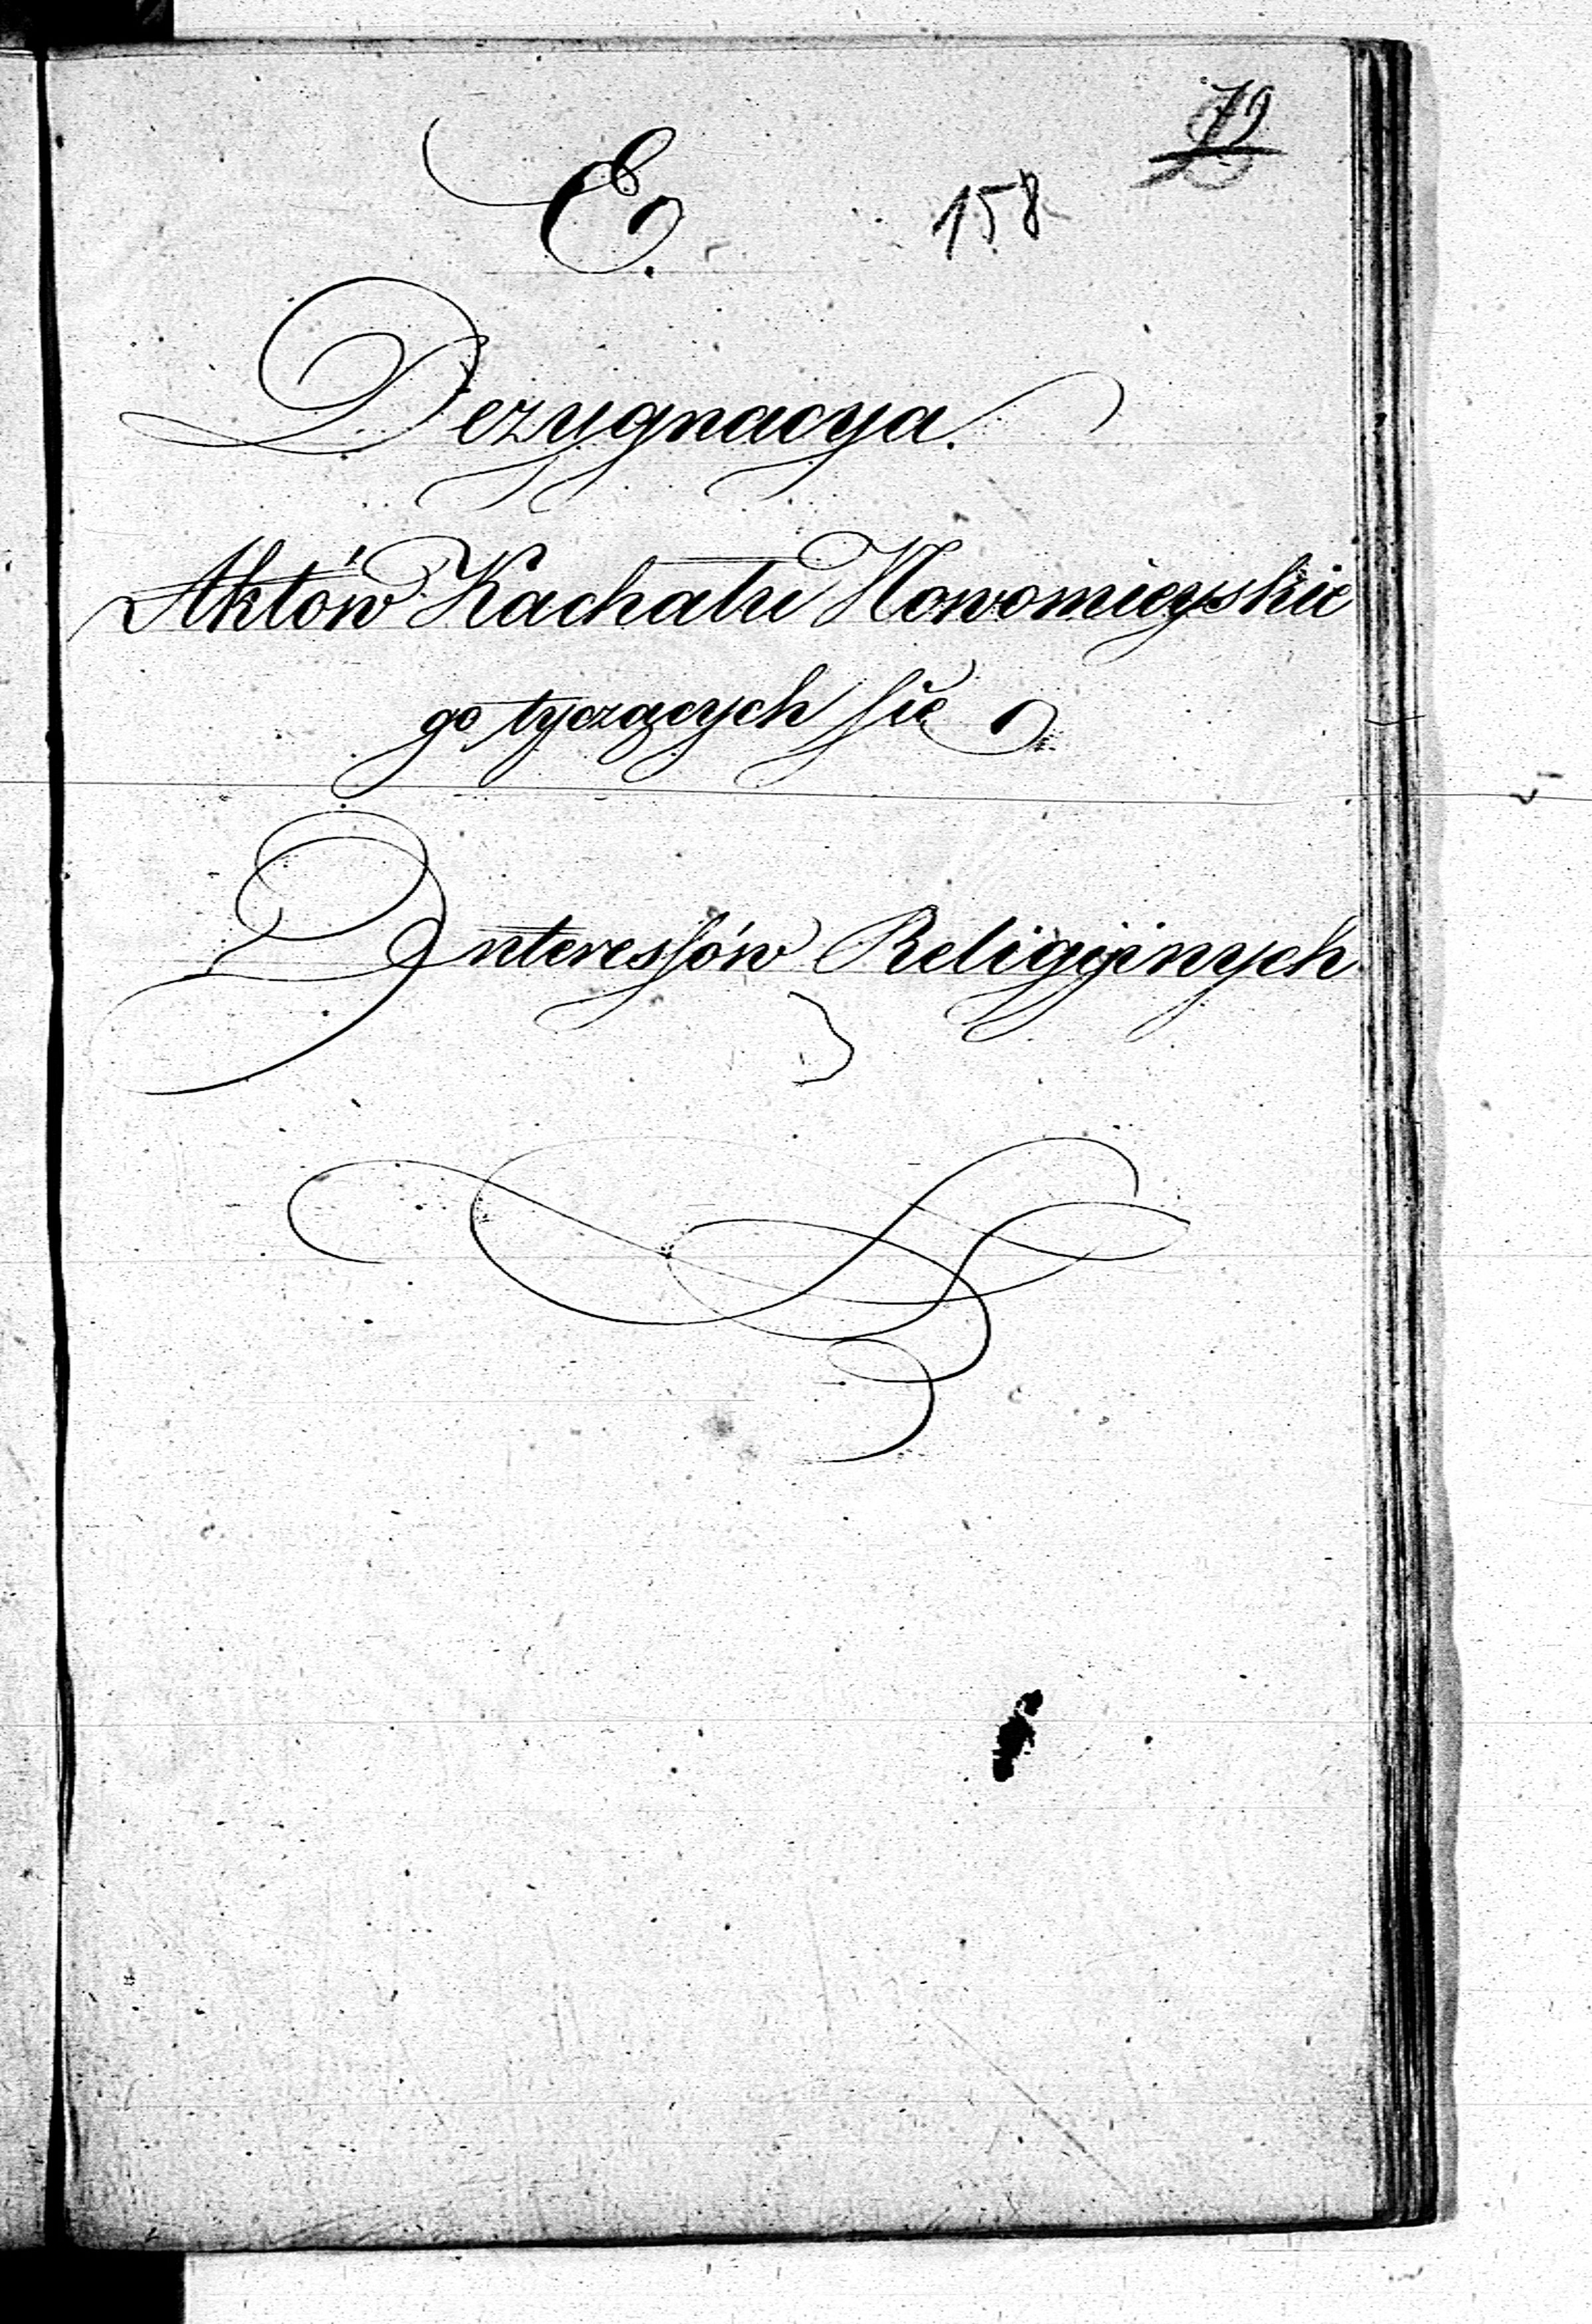 E.
158
Dezygnacya.
Aktów Kachalu Nowomieyskie
go tyczących sie
Interessów Religijinych